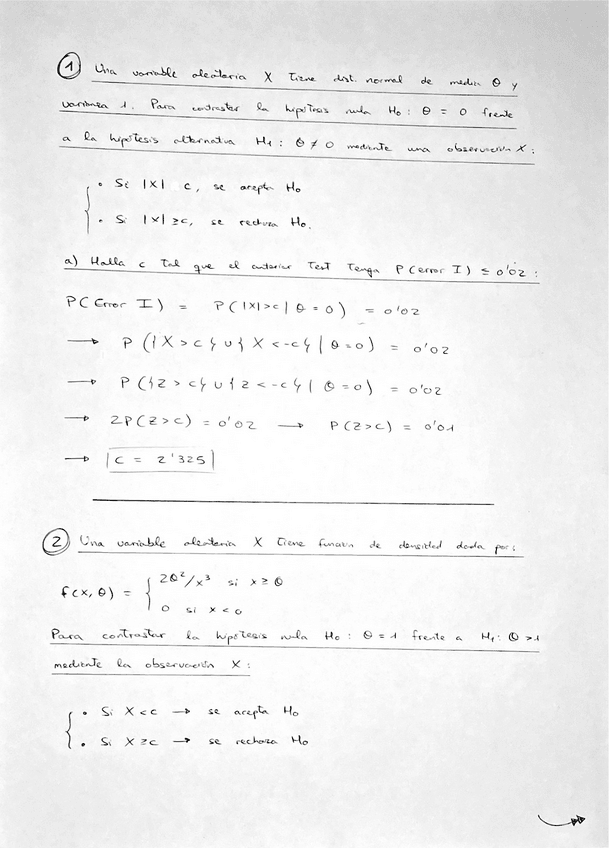 1 Una variable aleatoria X tiene dist. normal de media θ y
varianza 1. Para contrastar la hipótesis nula H₀: θ = 0 frente
a la hipótesis alternativa H₁: θ ≠ 0 mediante una observación X:
• Si |X| c, se acepta H₀
• Si |X| ≥ c, se rechaza H₀.
a) Halla c tal que el anterior test tenga P(error I) ≤ 0'02:
P(Error I) = P(|X|>c | θ = 0) = 0'02
→ P({X > c} ∪ {X < -c} | θ=0) = 0'02
→ P({Z > c} ∪ {Z < -c} | θ=0) = 0'02
→ 2P(Z>c) = 0'02 → P(Z>c) = 0'01
→ |c = 2'325|
2 Una variable aleatoria X tiene función de densidad dada por:
f(x, θ) = { 2θ²/x³ si x ≥ θ
0 si x < 0
Para contrastar la hipótesis nula H₀: θ = 1 frente a H₁: θ > 1
mediante la observación X:
• Si X < c → se acepta H₀
• Si X ≥ c → se rechaza H₀